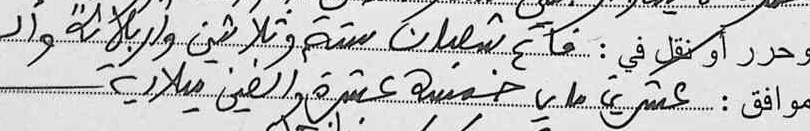 وحرر أو نقل في : فاتح شعبان ستة وثلاثين وأربعمائة وألف
موافق : عشرين ماي خمسة عشرة وألفين ميلادية